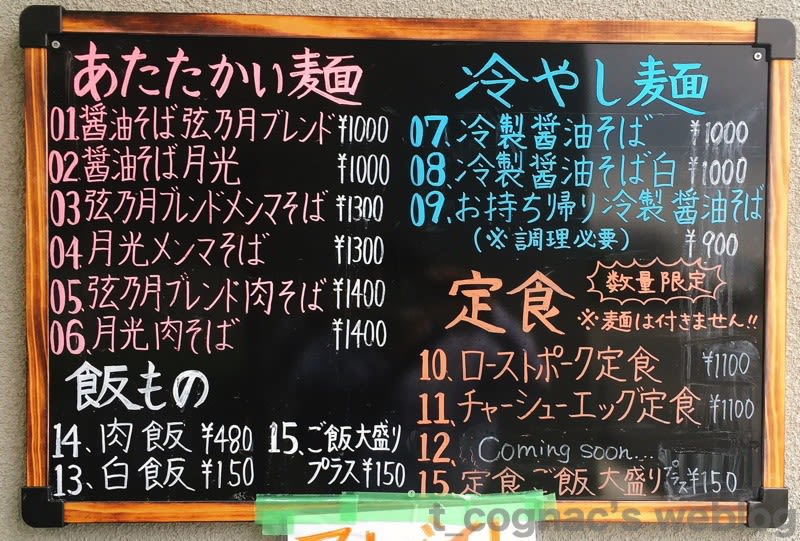 あたたかい麺
01醤油そば弦乃月ブレンド¥1000
02醤油そば月光 ¥1000
03弦乃月ブレンドメンマそば¥1300
04.月光メンマそば ¥1300
05.弦乃月ブレンド肉そば¥1400
06.月光肉そば ¥1400
飯もの
14、肉飯 ¥480
13、白飯 ¥150
15、ご飯大盛り
プラス¥150
冷やし麺
07、冷製醤油そば ¥1000
08、冷製醤油そば白 ¥1000
09、お持ち帰り冷製醤油そば
(※調理必要) ¥900
定食
数量限定
※麺は付きません!!
10、ローストポーク定食 ¥1100
11、チャーシューエッグ定食 ¥1100
12、 Coming soon...
15、定食ご飯大盛りプラス¥150
t_cognac's weblog